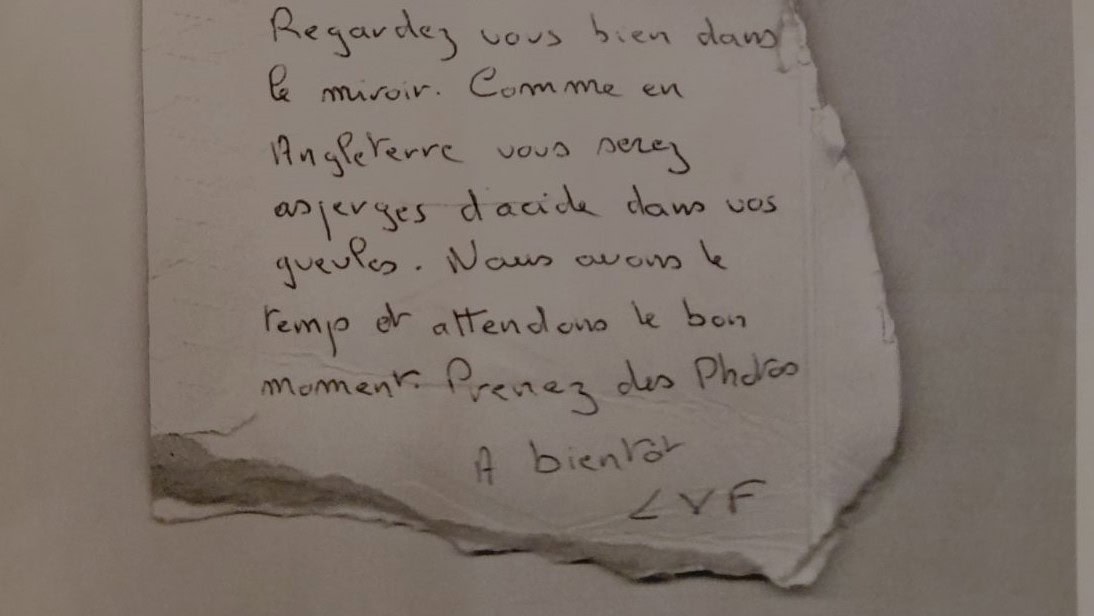 Regardez vous bien dans
le miroir. Comme en
Angleterre vous serez
asperges d'acide dans vos
gueules. Nous avons le
temp et attendons le bon
moment. Prenez des Photos
A bientôt
LVF